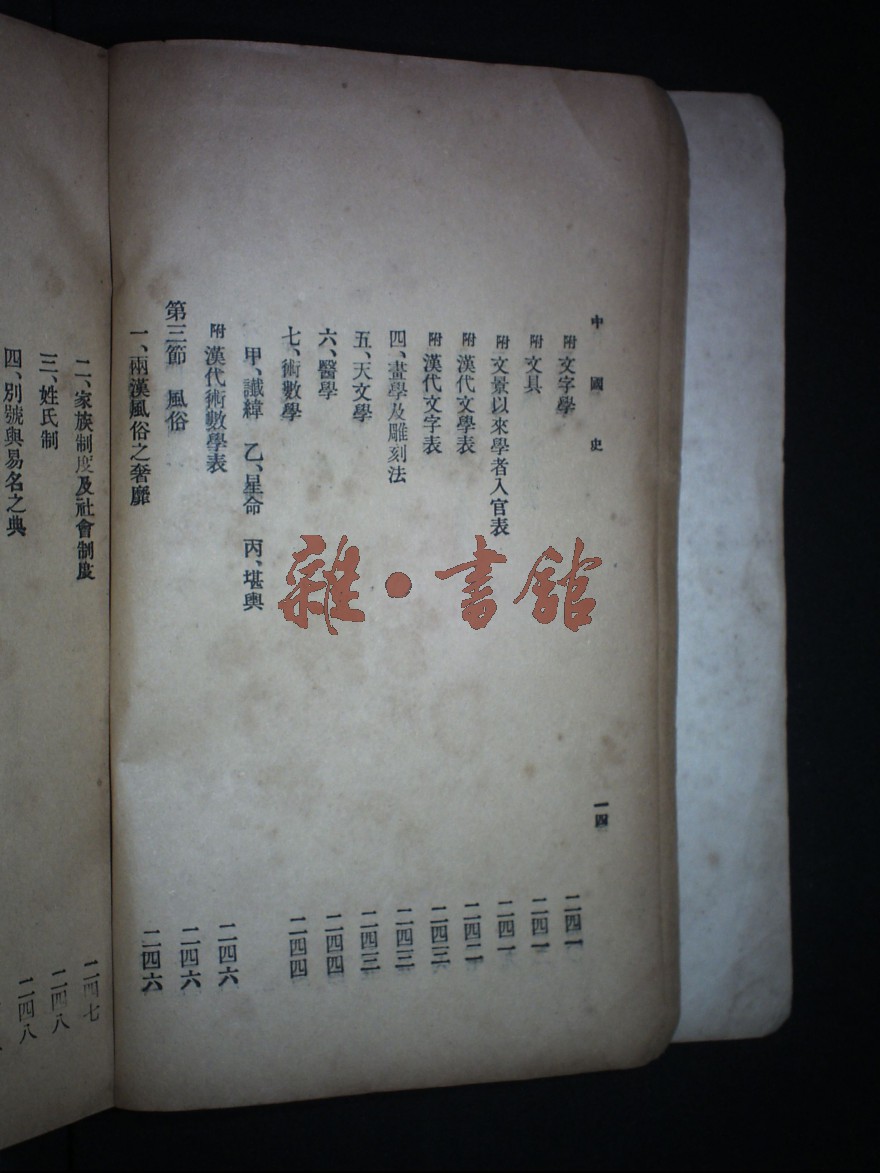 中國史
一四
附 文字學 二四一
附 文具 二四一
附 文景以來學者入官表 二四一
附 漢代文學表 二四二
附 漢代文字表 二四三
四、畫學及雕刻法 二四三
五、天文學 二四三
六、醫學 二四四
七、術數學 二四四
甲、讖緯 乙、星命 丙、堪輿
附 漢代術數學表 二四六
第三節 風俗 二四六
一、兩漢風俗之奢靡 二四六
二、家族制度及社會制度 二四七
三、姓氏制 二四八
四、別號與易名之典 二四八
雜·書館